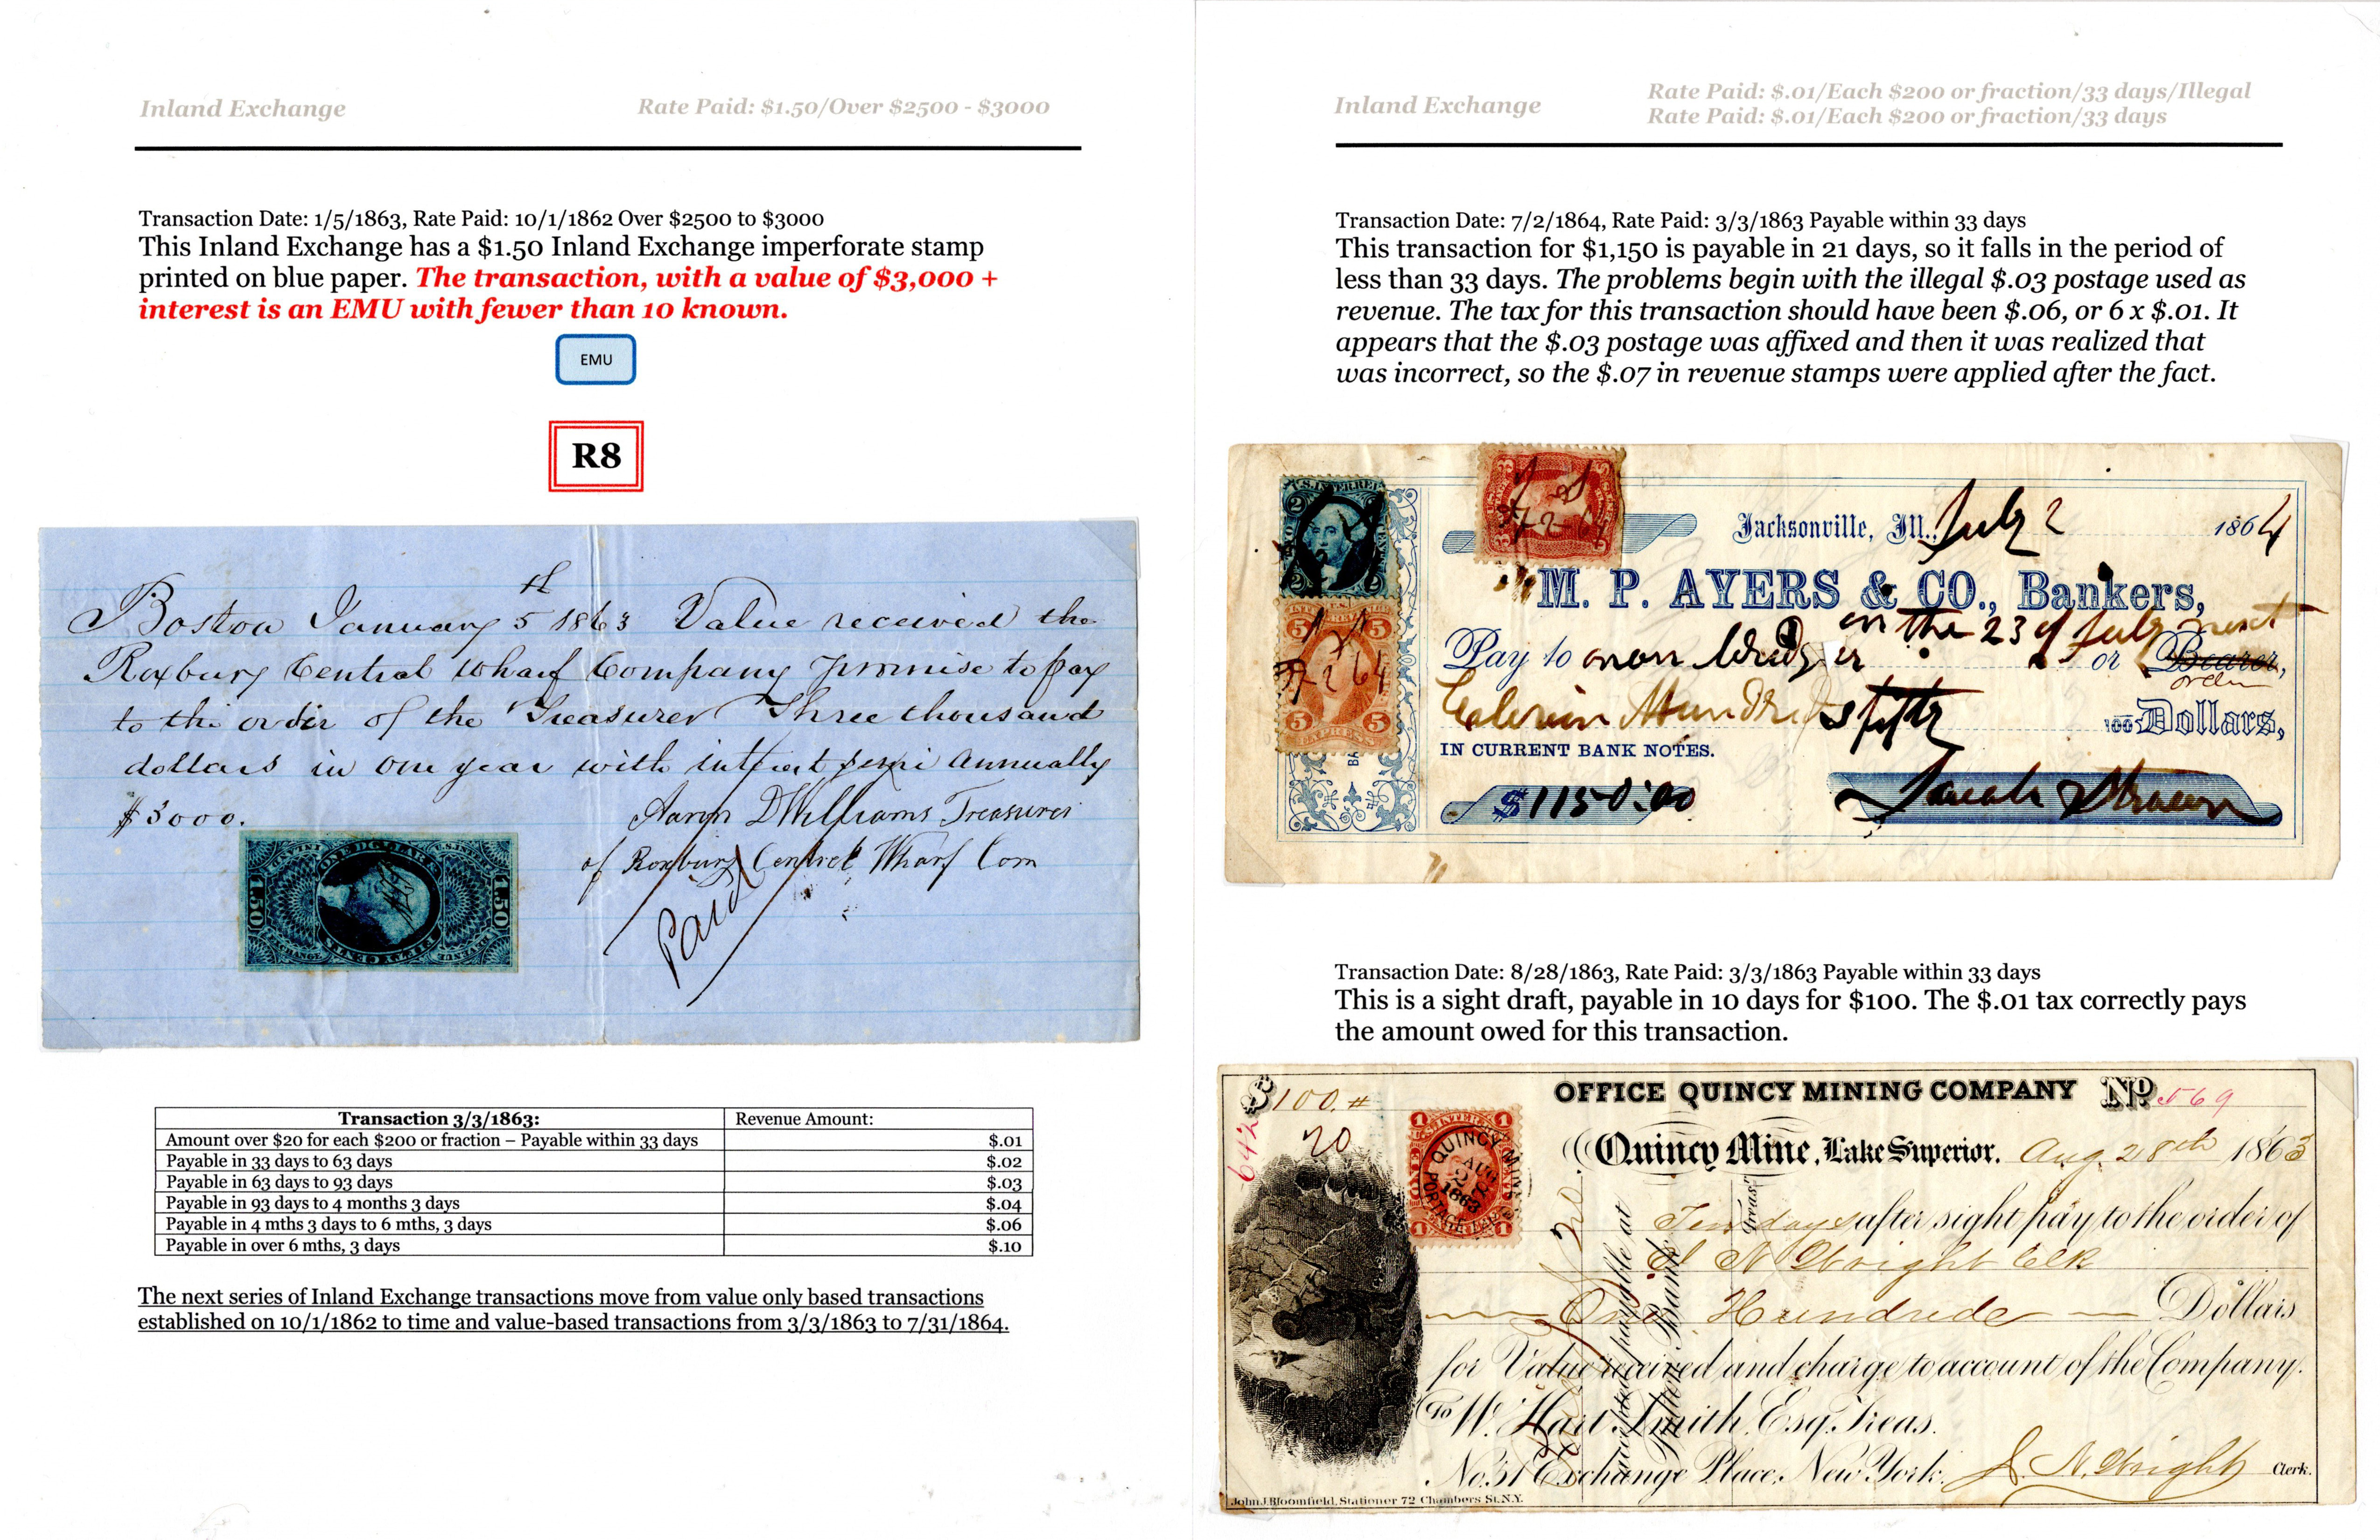 Inland Exchange
Rate Paid: $1.50/Over $2500 - $3000
Transaction Date: 1/5/1863, Rate Paid: 10/1/1862 Over $2500 to $3000
This Inland Exchange has a $1.50 Inland Exchange imperforate stamp
printed on blue paper. The transaction, with a value of $3,000 +
interest is an EMU with fewer than 10 known.
EMU
R8
Boston January 5th 1863 Value received the
Roxbury Central Wharf Company promise to pay
to the order of the Treasurer Three thousand
dollars in one year with interest semi Annually
$3000.
Aaron D Williams Treasurer
of Roxbury Central Wharf Com
Paid
Transaction 3/3/1863: Revenue Amount:
Amount over $20 for each $200 or fraction – Payable within 33 days $.01
Payable in 33 days to 63 days $.02
Payable in 63 days to 93 days $.03
Payable in 93 days to 4 months 3 days $.04
Payable in 4 mths 3 days to 6 mths, 3 days $.06
Payable in over 6 mths, 3 days $.10
The next series of Inland Exchange transactions move from value only based transactions
established on 10/1/1862 to time and value-based transactions from 3/3/1863 to 7/31/1864.
Inland Exchange
Rate Paid: $.01/Each $200 or fraction/33 days/Illegal
Rate Paid: $.01/Each $200 or fraction/33 days
Transaction Date: 7/2/1864, Rate Paid: 3/3/1863 Payable within 33 days
This transaction for $1,150 is payable in 21 days, so it falls in the period of
less than 33 days. The problems begin with the illegal $.03 postage used as
revenue. The tax for this transaction should have been $.06, or 6 x $.01. It
appears that the $.03 postage was affixed and then it was realized that
was incorrect, so the $.07 in revenue stamps were applied after the fact.
Jacksonville, Ill., July 2 1864
M. P. AYERS & CO., Bankers,
on the 23 of July next
Pay to or Bearer,
order
fifty 100 Dollars,
IN CURRENT BANK NOTES.
$1150:00
Transaction Date: 8/28/1863, Rate Paid: 3/3/1863 Payable within 33 days
This is a sight draft, payable in 10 days for $100. The $.01 tax correctly pays
the amount owed for this transaction.
$100.
OFFICE QUINCY MINING COMPANY No. 569
20
Quincy Mine, Lake Superior. Aug 28th 1863
QUINCY MINE
AUG
1863
Ten days after sight pay to the order of
Wright Clk
One Hundred Dollars
for Value received and charge to account of the Company.
To W. Hart Smith, Esq. Treas.
No. 31 Exchange Place, New York.
Wright Clerk.
payable at
Bank
Treas.
John J. Bloomfield, Stationer 72 Chambers St. N.Y.